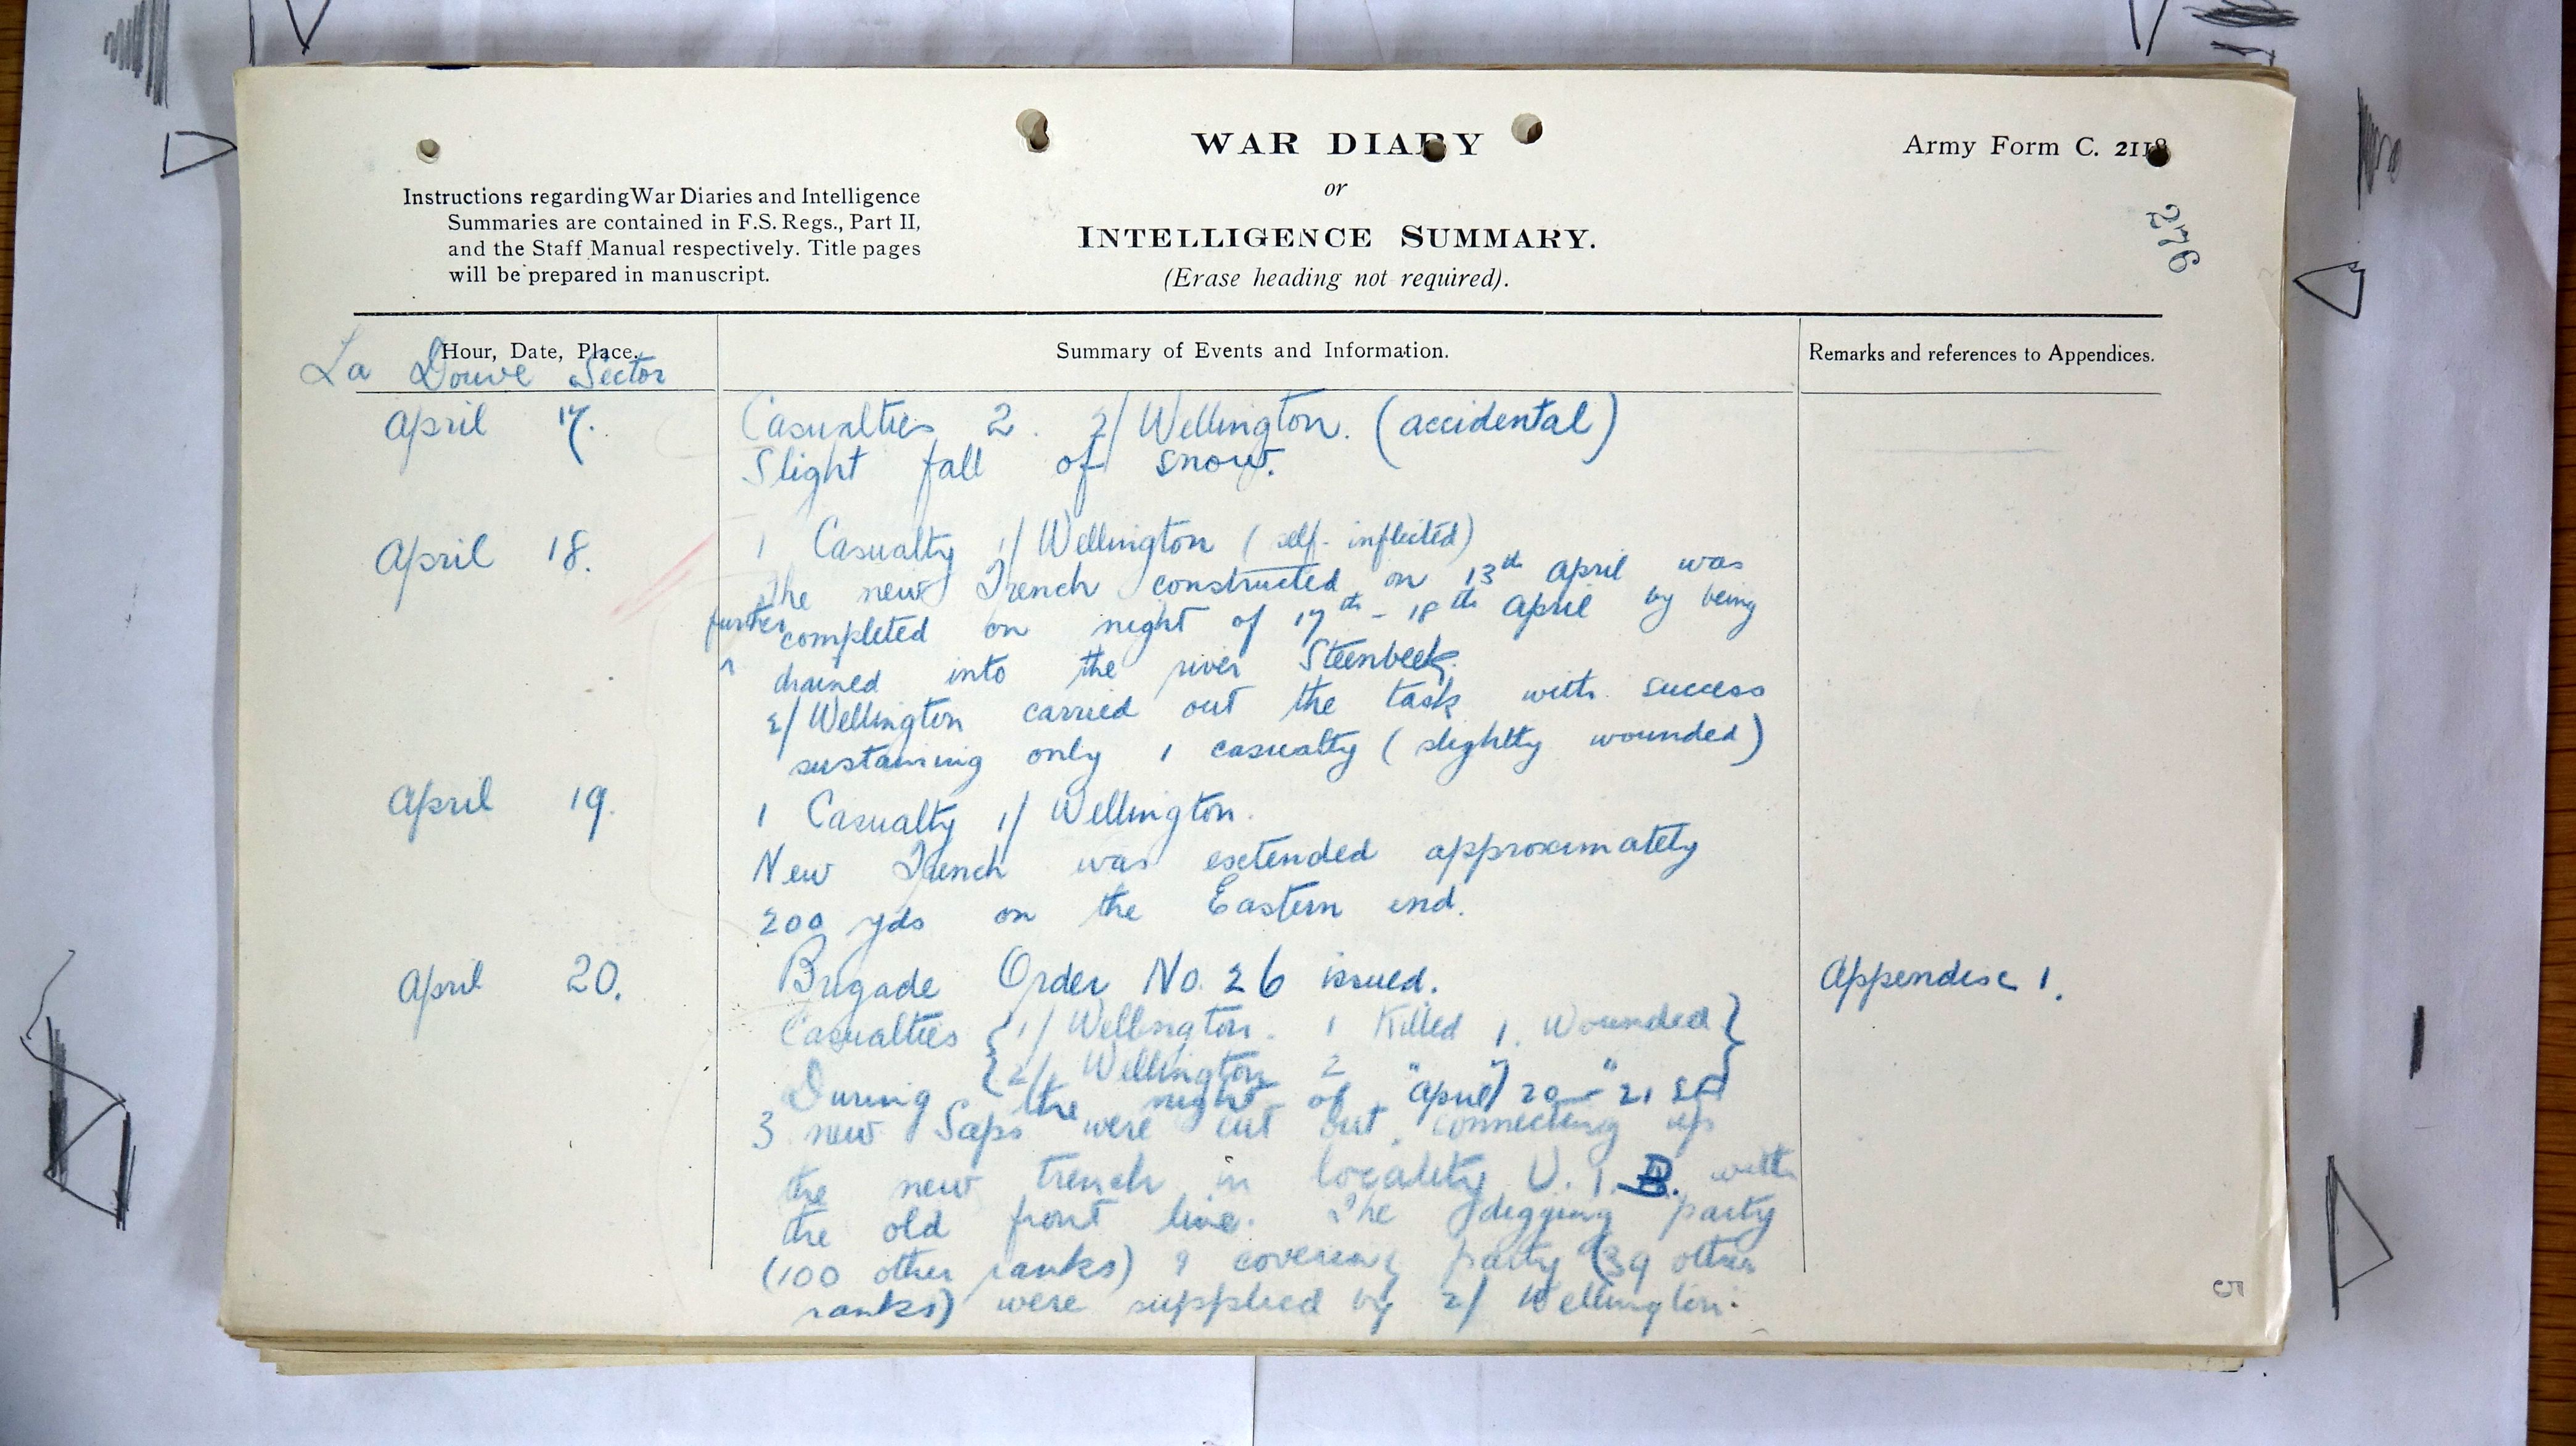 WAR DIARY
or
INTELLIGENCE SUMMARY.
(Erase heading not required).
Army Form C. 2118
276
Instructions regarding War Diaries and Intelligence
Summaries are contained in F.S. Regs., Part II,
and the Staff Manual respectively. Title pages
will be prepared in manuscript.
Hour, Date, Place.
Summary of Events and Information.
Remarks and references to Appendices.
La Douve Sector
April 17.
Casualties 2. 2/Wellington. (accidental)
Slight fall of snow.
April 18.
1 Casualty 1/Wellington (self-inflicted)
The new Trench constructed on 13th April was
further completed on night of 17th - 18th April by being
drained into the river Steenbeek.
2/Wellington carried out the task with success
sustaining only 1 casualty (slightly wounded)
April 19.
1 Casualty 1/ Wellington.
New Trench was extended approximately
200 yds on the Eastern end.
April 20.
Brigade Order No. 26 issued.
Appendix 1.
Casualties { 1/ Wellington. 1 Killed 1. Wounded }
{ 2/ Wellington 2 " " }
During the night of April 20 - 21 st
3 new Saps were cut out, connecting up
the new trench in locality U. 1. B. with
the old front line. The digging party
(100 other ranks) & covering party (39 other
ranks) were supplied by 2/ Wellington.
5